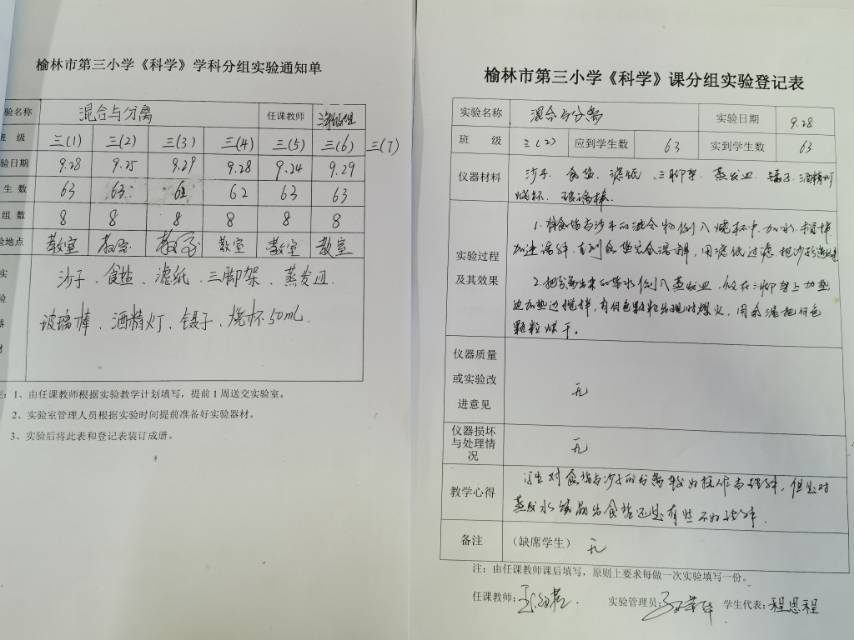 榆林市第三小学《科学》学科分组实验通知单
验名称 混合与分离 任课教师
级 三(1) 三(2) 三(3) 三(4) 三(5) 三(6) 三(7)
验日期 9.28 9.25 9.29 9.28 9.24 9.29
生数 63 63 62 62 63 63
组数 8 8 8 8 8 8
验地点 教室 教室 教室 教室 教室 教室
沙子、食盐、滤纸、三脚架、蒸发皿、
玻璃棒、酒精灯、镊子、烧杯50mL
1、由任课教师根据实验教学计划填写，提前1周送交实验室。
2、实验室管理人员根据实验时间提前准备好实验器材。
3、实验后将此表和登记表装订成册。
榆林市第三小学《科学》课分组实验登记表
实验名称 混合与分离 实验日期 9.28
班级 三(2) 应到学生数 63 实到学生数 63
仪器材料 沙子、食盐、滤纸、三脚架、蒸发皿、镊子、酒精灯
烧杯、玻璃棒
实验过程
及其效果
1.将食盐与沙子的混合物倒入烧杯中,加水,
加速溶解,直到食盐完全溶解,用滤纸过滤,把沙子
2.把分离出来的盐水倒入蒸发皿,放在三脚架上加热
边加热边搅拌,有白色颗粒出现时熄火,用余温把白色
颗粒烘干。
仪器质量
或实验改
进意见
无
仪器损坏
与处理情
况
无
教学心得 学生对食盐与沙子的分离较为操作与理解,但是对
蒸发水结晶出食盐还是有些不好理解.
备注 （缺席学生） 无
注：由任课教师课后填写，原则上要求每做一次实验填写一份。
任课教师: 实验管理员: 学生代表: 程恩程